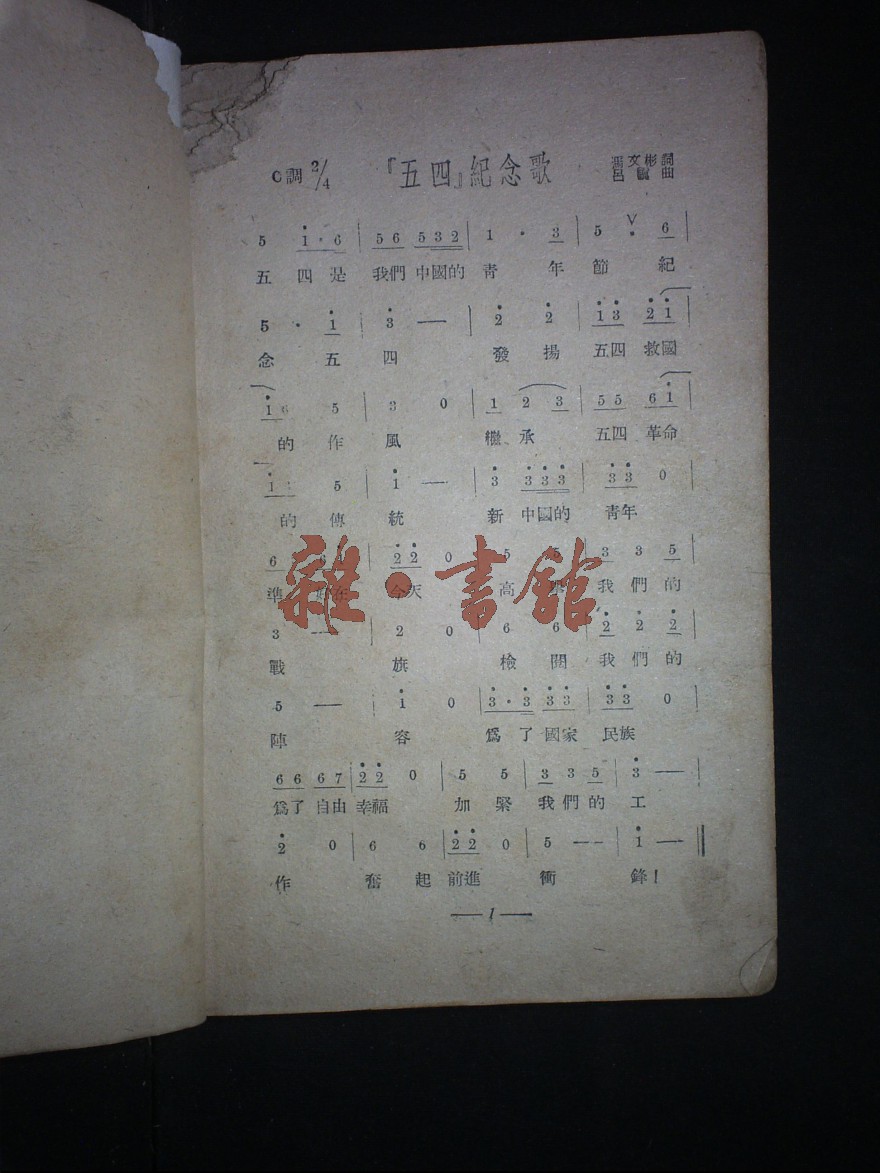 C調 2/4 『五四』紀念歌 馮文彬詞
呂驥曲
5 1·6 | 56 532 | 1 · 3 | 5 · 6 |
五 四 是 我們 中國的 青 年 節 紀
5 · 1 | 3 — | 2 2 | 13 21 |
念 五 四 發 揚 五四 救國
16 5 | 3 0 | 1 2 3 | 55 61 |
的 作 風 繼 承 五四 革命
1 5 | 1 — | 3 333 | 33 0 |
的 傳 統 新 中國的 青年
6 | 22 0 5 | 3 3 5
準 今天 高 我 們 的
3 — | 2 0 | 6 6 | 2 2 2
戰 旗 檢閱 我 們 的
5 — | 1 0 | 3·3 33 | 33 0 |
陣 容 爲 了 國家 民族
66 67 | 22 0 | 5 5 | 3 3 5 | 3 — |
爲了 自由 幸福 加 緊 我 們 的 工
2 0 | 6 6 | 22 0 | 5 — — | 1 — ‖
作 奮 起 前進 衝 鋒!
— 1 —
雜·書館